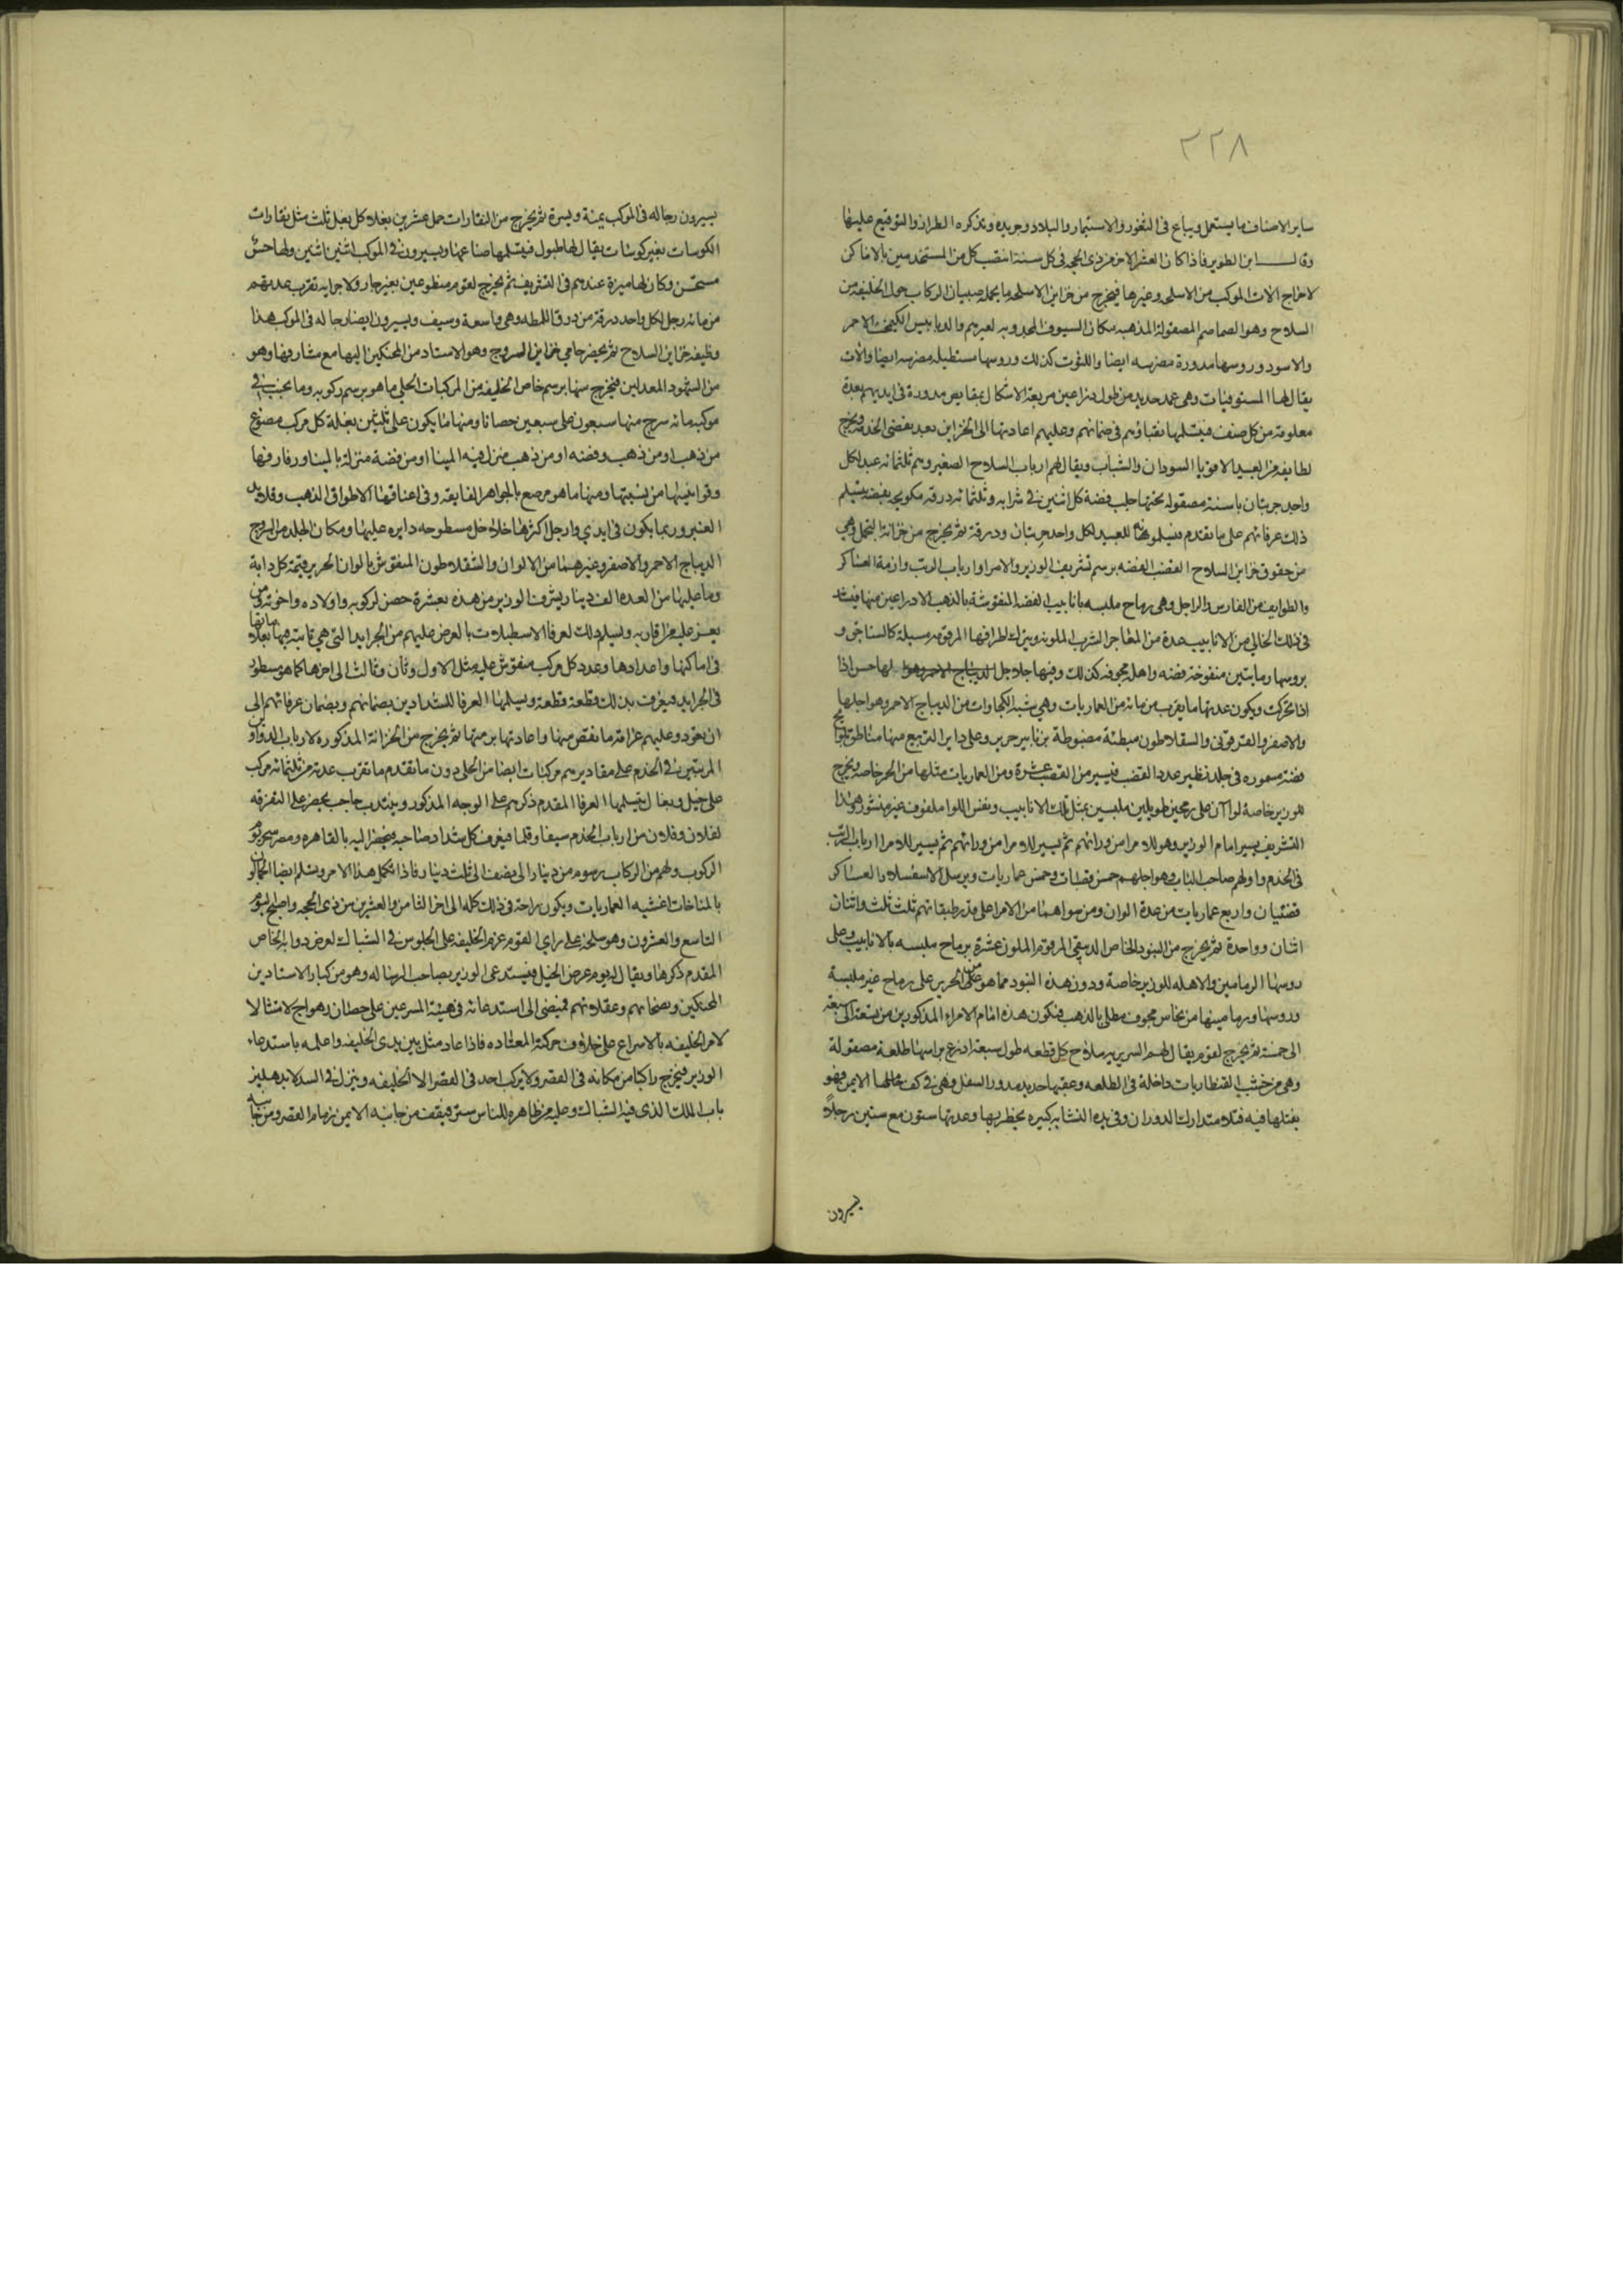 ٢٢٨
ساير الاصناف ما يستعمل ويباع فى الثغور والاستيمار والبلاد وجريده وتذكره الطراز والتوقيع عليها
وقال ابن الطوير فاذا كان العشر الاخر من ذى الحجه فى كل سنة انتصب كل من المستخدمين بالاماكن
لاخراج الات الموكب من الاسلحه وغيرها فيخرج من خزاين الاسلحه ما يحمله صبيان الركاب حول الخليفه من
السلاح وهو الصماصم المصقولة المذهبه مكان السيوف المحدوبه لغيرهم والدبابيس الكيمخت الاحمر
والاسود وروسها مدورة مضرسه ايضا واللتوت كذلك وروسها مستطيله مضرسه ايضا والات
يقال لها المستوفيات وهى عمد حديد من طول ذراعين مربعة الاشكال بمقابض مدورة فى ايديهم بعدة
معلومة من كل صنف فيتسلمها نقباؤهم فى ضمانهم وعليهم اعادتها الى الخزاين بعد تقضى الخدمه ويخرج
لطايفه من العبيد الاقويا السودان والشباب ويقال لهم ارباب السلاح الصغير وهم ثلثمائه عبد لكل
واحد حربتان باسنة مصقوله تحتها جلب فضة كل اثنين فى شرابه وثلثمائه درقه بكوبجه فضه يتسلم
ذلك عرفائهم على ما تقدم فيسلمونه للعبيد لكل واحد حربتان ودرقة ثم يخرج من خزانة التجمل وهى
من حقوق خزاين السلاح القضب الفضه برسم تشريف الوزير والامرا وارباب الرتب وازمة العساكر
والطوايف من الفارس والراجل وهى رماح ملبسه بانابيب الفضه المنقوشة بالذهب الا ذراعين منها فيشد
فى ذلك الخالى من الانابيب عدة من المعاجر الشرب الملونه ويترك اطرافها المرقومه مسبلة كالسناجق و
بروسها رمامين منفوخة فضه واهله مجوفه كذلك وفيها جلاجل لها حس اذا
اذا تحركت ويكون عدتها ما يقرب من مائه من العماريات وهى شبه الكجاوات من الديباج الاحمر وهو اجلها
والاصفر والقرقوبى والسقلاطون مبطنة مضبوطة بزنانير حرير وعلى داير التربيع منها مناطق بكوامخ
فضة مسموره فى جلد نظير عدد القضب فيسير من القضب عشرة ومن العماريات مثلها من الحمر خاصه ويخرج
للوزير خاصة لوا آن على رمحين طويلين ملبسين بمثل تلك الانابيب ونفس اللوا ملفوف غير منشور وهذا
التشريف يسير امام الوزير وهو للامرا من ورائهم ثم يسير للامرا من ورائهم ثم يسير للامرا ارباب الرتب
فى الخدم واولهم صاحب الباب وهو اجلهم خمس قصبات وخمس عماريات ويرسل الاسفسلار العساكر
قضيبان واربع عماريات من عدة الوان ومن سواهما من الامرا على قدر طبقاتهم ثلث ثلث واثنان
اثنان وواحدة ثم يخرج من البنود الخاص الدبيقى المرقوم الملون عشرة برماح ملبسه بالانابيب وعلى
روسها الرمامين والاهله للوزير خاصة ودون هذه البنود مما هو من الحرير على رماح غير ملبسة
وروسها ورمامينها من نحاس مجوف مطلى بالذهب فتكون هذه امام الامراء المذكورين من تسعة الى سبعة
الى خمسة ثم يخرج لقوم يقال لهم السريريه سلاح كل قطعه طول سبعة اذرع براسها طلعة مصقولة
وهى من خشب القنطاريات داخلة فى الطلعه وعقبها حديد مدور السفل وهى فى كف حاملها الايمن فهو
يفتلها فيه فتلا متدارك الدوران وفى يده النشابه كبيره يخطر بها وعدتها ستون مع ستين رجلا
يسيرون
يسيرون رجاله فى الموكب يمنة ويسرة ثم يخرج من النقارات حمل عشرين بغلا كل بغل ثلث مثل نقارات
الكوسات بغير كوسات يقال لها طبول فيتسلمها صناعها ويسيرون فى الموكب اثنين اثنين ولها حس
مستحسن وكان لها ميزة عندهم فى التشريف ثم يخرج لقوم متطوعين بغير جار ولا جرايه تقرب عدتهم
من مائه رجل لكل واحد درقة من درق اللمط وهى واسعة وسيف ويسيرون ايضا رجاله فى الموكب هذا
وظيفه خزاين السلاح ثم يحضر حامى خزاين السروج وهو الاستاد من المحنكين اليها مع مشارفها وهو
من الشهود المعدلين فيخرج منها برسم خاص الخليفه من المركبات الحلى ما هو برسم ركوبه وما يجنب فى
موكبه مائه سرج منها سبعون على سبعين حصانا ومنها ما يكون على ثلثين بغلة كل مركب مصوغ
من ذهب او من ذهب وفضه او من ذهب منزل فيه المينا او من فضة منزلة بالمينا وروادفها
وقرابيسها من نسبتها ومنها ما هو مرصع بالجواهر الفايقه وفى اعناقها الاطواق الذهب وقلايد
العنبر وربما يكون فى ايدى وارجل اكثرها خلاخل مسطوحه دايره عليها ومكان الجلد من السروج
الديباج الاحمر والاصفر وغيرهما من الالوان والسقلاطون المنقوش بالوان الحرير قيمة كل دابة
وما عليها من العده الف دينار يشرف الوزير من هذه بعشرة حصن لركوبه واولاده واخوته ومن
يعز عليه من اقاربه ويسلم ذلك لعرفا الاسطبلات بالعرض عليهم من الجرايد التى هى ثابته فيها بعلاماتها
فى اماكنها واعدادها وعدد كل مركب منقوش عليه مثل الاول وثان وثالث الى اخرها كما هو مسطور
فى الجرايد فيعرف بذلك قطعة قطعة ويسلمها العرفا للشدادين بضمانهم وبضمان عرفائهم الى
ان تعود وعليهم غرامة ما نقص منها واعادتها برمتها ثم يخرج من الخزانة المذكوره لارباب الدواوين
المرتبين فى الخدم على مقاديرهم مركبات ايضا من الحلى دون ما تقدم ما تقرب عدته من ثلثمائه مركب
على خيل وبغال يتسلمها العرفا المقدم ذكرهم على الوجه المذكور وينتدب حاجب يحضر على التفرقه
لفلان وفلان من ارباب الخدم سيفا وقلما فيعرف كل شداد صاحبه فيحضر اليه بالقاهره ومصر سحر يوم
الركوب ولهم من الركاب رسوم من دينار الى نصف الى ثلث دينار فاذا تكمل هذا الامر وتسلم ايضا الجمالون
بالمناخات اغشيه العماريات ويكون ازاحة فى ذلك كله الى اخر الثامن والعشرين من ذى الحجه واصبح اليوم
التاسع والعشرون وهو سلخه على راى القوم عزم الخليفه على الجلوس فى الشباك لعرض دوابه الخاص
المقدم ذكرها ويقال له يوم عرض الخيل فيستدعى الوزير بصاحب الرساله وهو من كبار الاستادين
المحنكين وفصحائهم وعقلائهم فيمضى الى استدعائه فى هيئة المسرعين على حصان دهواج لامتثالا
لامر الخليفه بالاسراع على خلاف حركته المعتاده فاذا عاد مثل بين يدى الخليفه واعلمه باستدعاء
الوزير فيخرج راكبا من مكانه فى القصر ولا يركب احد فى القصر الا الخليفه وينزل فى السدلا بدهليز
باب الملك الذى فيه الشباك وعليه من ظاهره للناس ستر فيقف من جانبه الايمن زمام القصر ومن جانبه